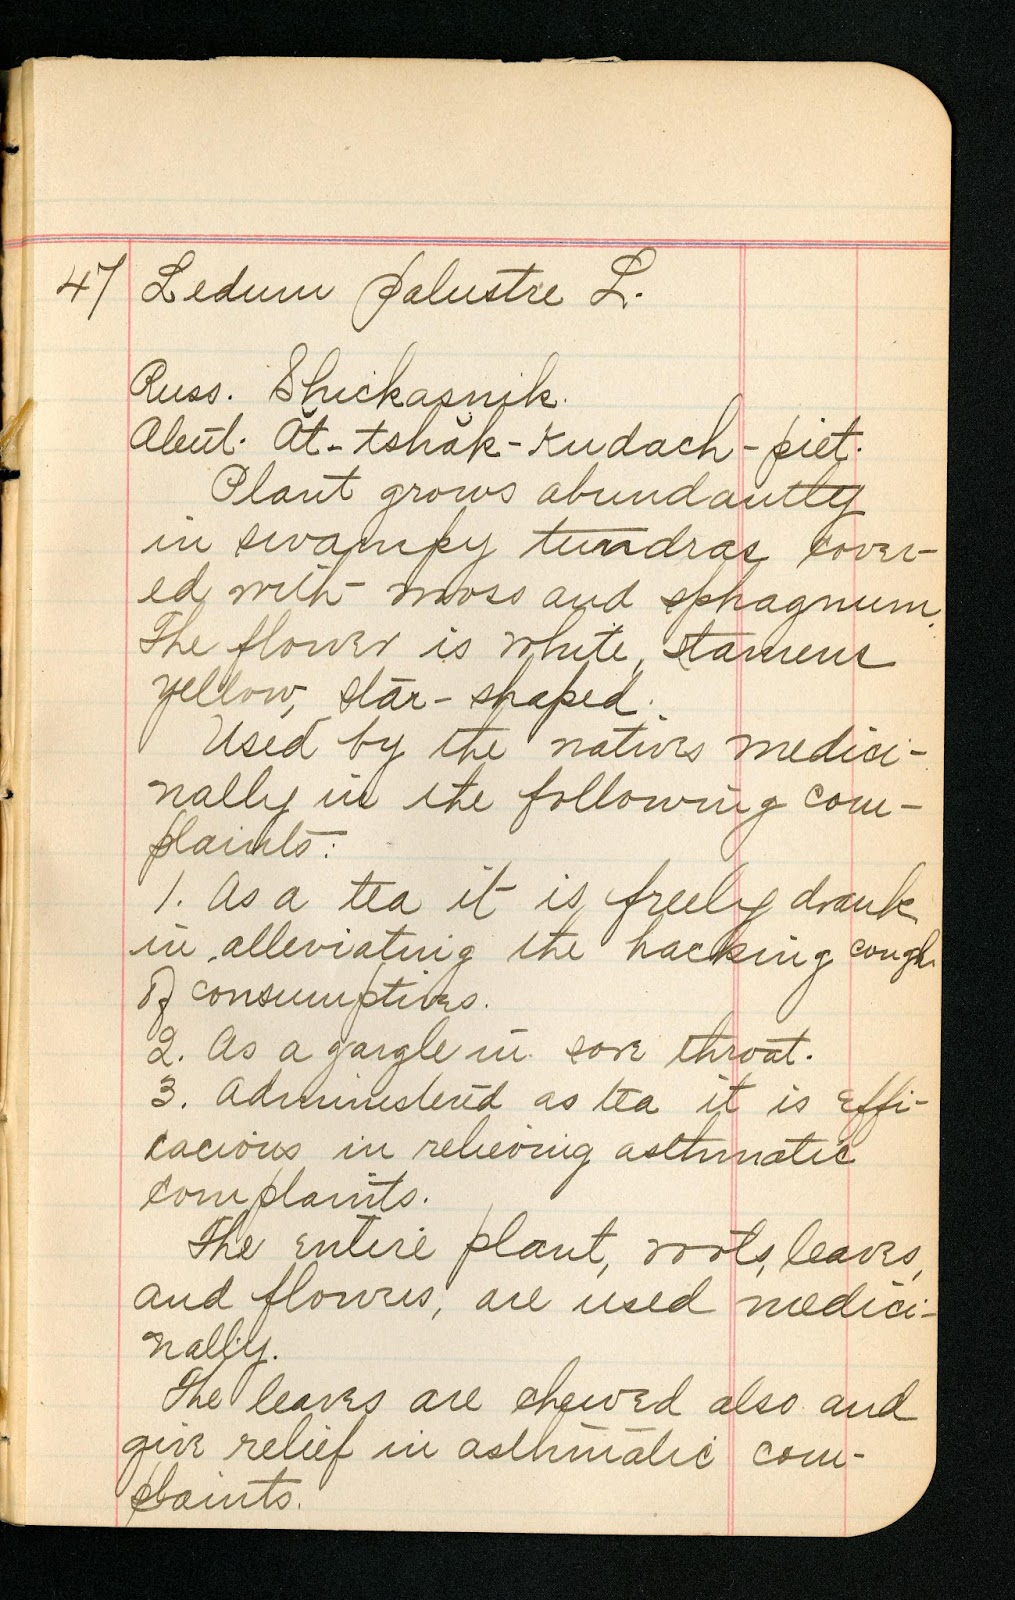 47 Ledum palustre L.
Russ. Shickasnik.
Aleut. Ăt-tshăk-kudach-piet.
Plant grows abundantly
in swampy tundras cover-
ed with moss and sphagnum.
The flower is white, stamens
yellow, star-shaped.
Used by the natives medici-
nally in the following com-
plaints:
1. As a tea it is freely drank
in alleviating the hacking cough
of consumptives.
2. As a gargle in sore throat.
3. Administered as tea it is effi-
cacious in relieving asthmatic
complaints.
The entire plant, roots, leaves,
and flowers, are used medici-
nally.
The leaves are chewed also and
give relief in asthmatic com-
plaints.